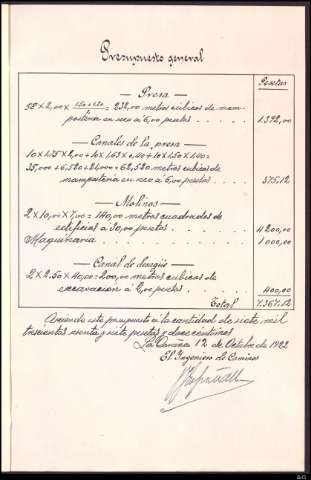 Presupuesto general
Pesetas
— Presa —
58 x 2,00 x = 232,00 metros cúbicos de mam-
postería en seco á 6,00 pesetas . . . . . 1.392,00
— Canales de la presa —
10 x 1,75 x 2,00 + 10 x 1,63 x 0,40 + 10 x 1,50 x 1,40 =
35,00 + 6,520 + 21,00 = 62,520 metros cúbicos de
mampostería en seco á 6,00 pesetas . . . . 375,12
— Molinos —
2 x 10,00 x 7,00 = 140,00 metros cuadrados de
edificios á 30,00 pesetas . . . . 4200,00
Maquinaria . . . . 1000,00
— Canal de desagüe —
2 x 2,50 x 40,00 = 200,00 metros cúbicos de
excavación á 2,00 pesetas . . . . 400,00
Total 7.367,12
Asciende este presupuesto á la cantidad de siete mil
trescientas sesenta y siete pesetas y doce céntimos
La Coruña 12 de Octubre de 1922
El Ingeniero de Caminos